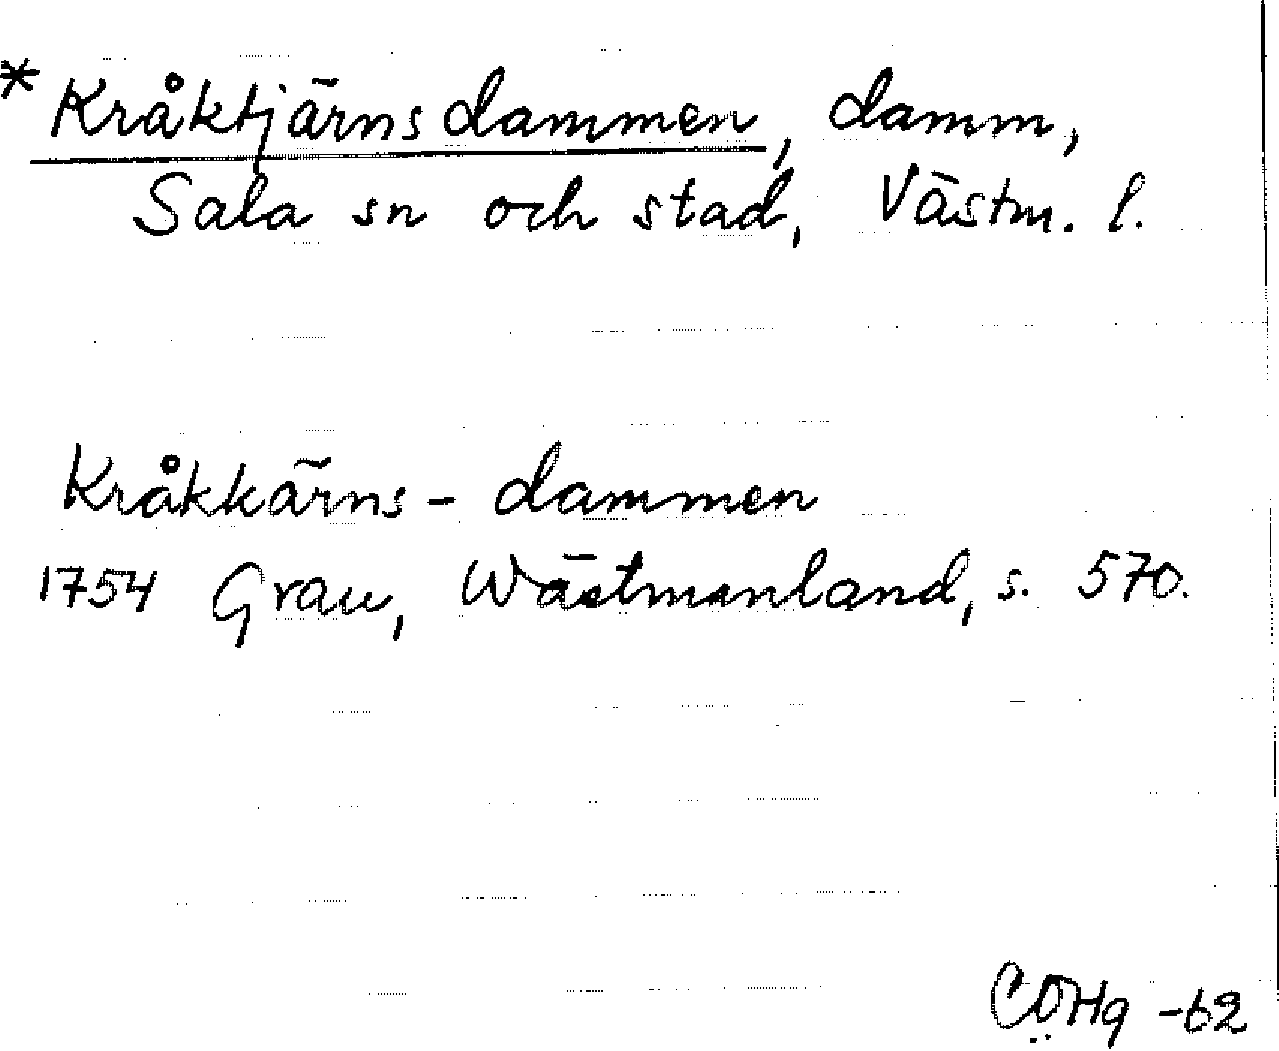 *Kråktjärnsdammen, damm,
Sala sn och stad, Västm. l.
Kråkkärns-dammen
1754 Grau, Wästmanland, s. 570.
CÖHg -62